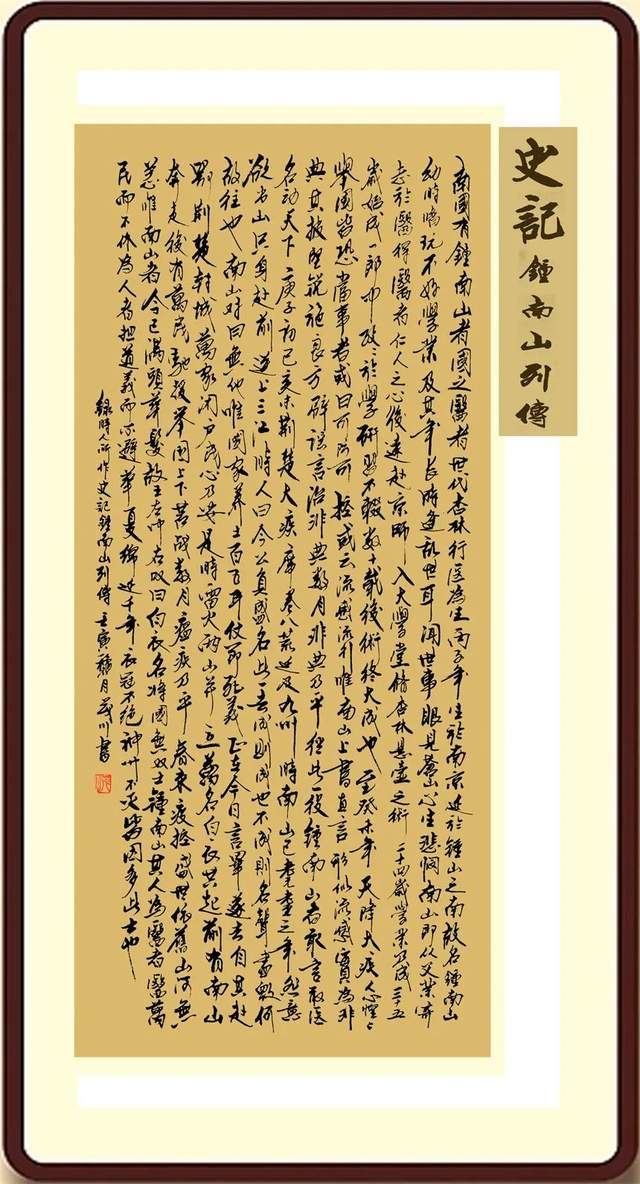 史記
鍾南山列傳
南國有鍾南山者國之醫者世代杏林行医為生丙子年生於南京近於鍾山之南故名鍾南山
幼時嬉玩不好學業及其年長時逢亂世耳聞世事眼見蒼山心生悲憫南山即從父業寄
志於醫得醫者仁人之心後遠赴京師入大學堂脩杏林懸壺之術二十四歲學業乃成三十五
歲始成一郎中孜〻於學研習不輟數十載後術終大成也至癸未年天降大疾人心惶〻
舉國皆恐當事者或曰可防可控或云流感流行唯南山上書直言形似流感實為非
典其披堅銳施良方辟謠言治非典數月非典乃平經此一役鍾南山者敢言敢医
名動天下庚子初己亥末荆楚大疾席卷八荒延及九州時南山已耄耋之年然意
欲出山只身赴前逆上三江時人曰今公負盛名此一去成則成也不成則名聲盡毀何
故往也南山對曰無他唯國家養士百百年仗節死義正在今日言畢遂去自其赴
鄂荆楚封城萬家闭户民心乃安是時雷火神山并立萬名白衣共起前有南山
奔走後有萬民馳援举國上下苦战數月瘟疾乃平春來疫控盛世依舊山河無
恙唯南山者今已满頭華髮故主左叩右叹曰白衣名將國無双士鍾南山其人為醫者醫萬
民而不休為人者担道義而不避華夏綿延千年衣冠不绝神州不灭皆因多此士也
録時人所作史記鍾南山列傳壬寅 月 川書